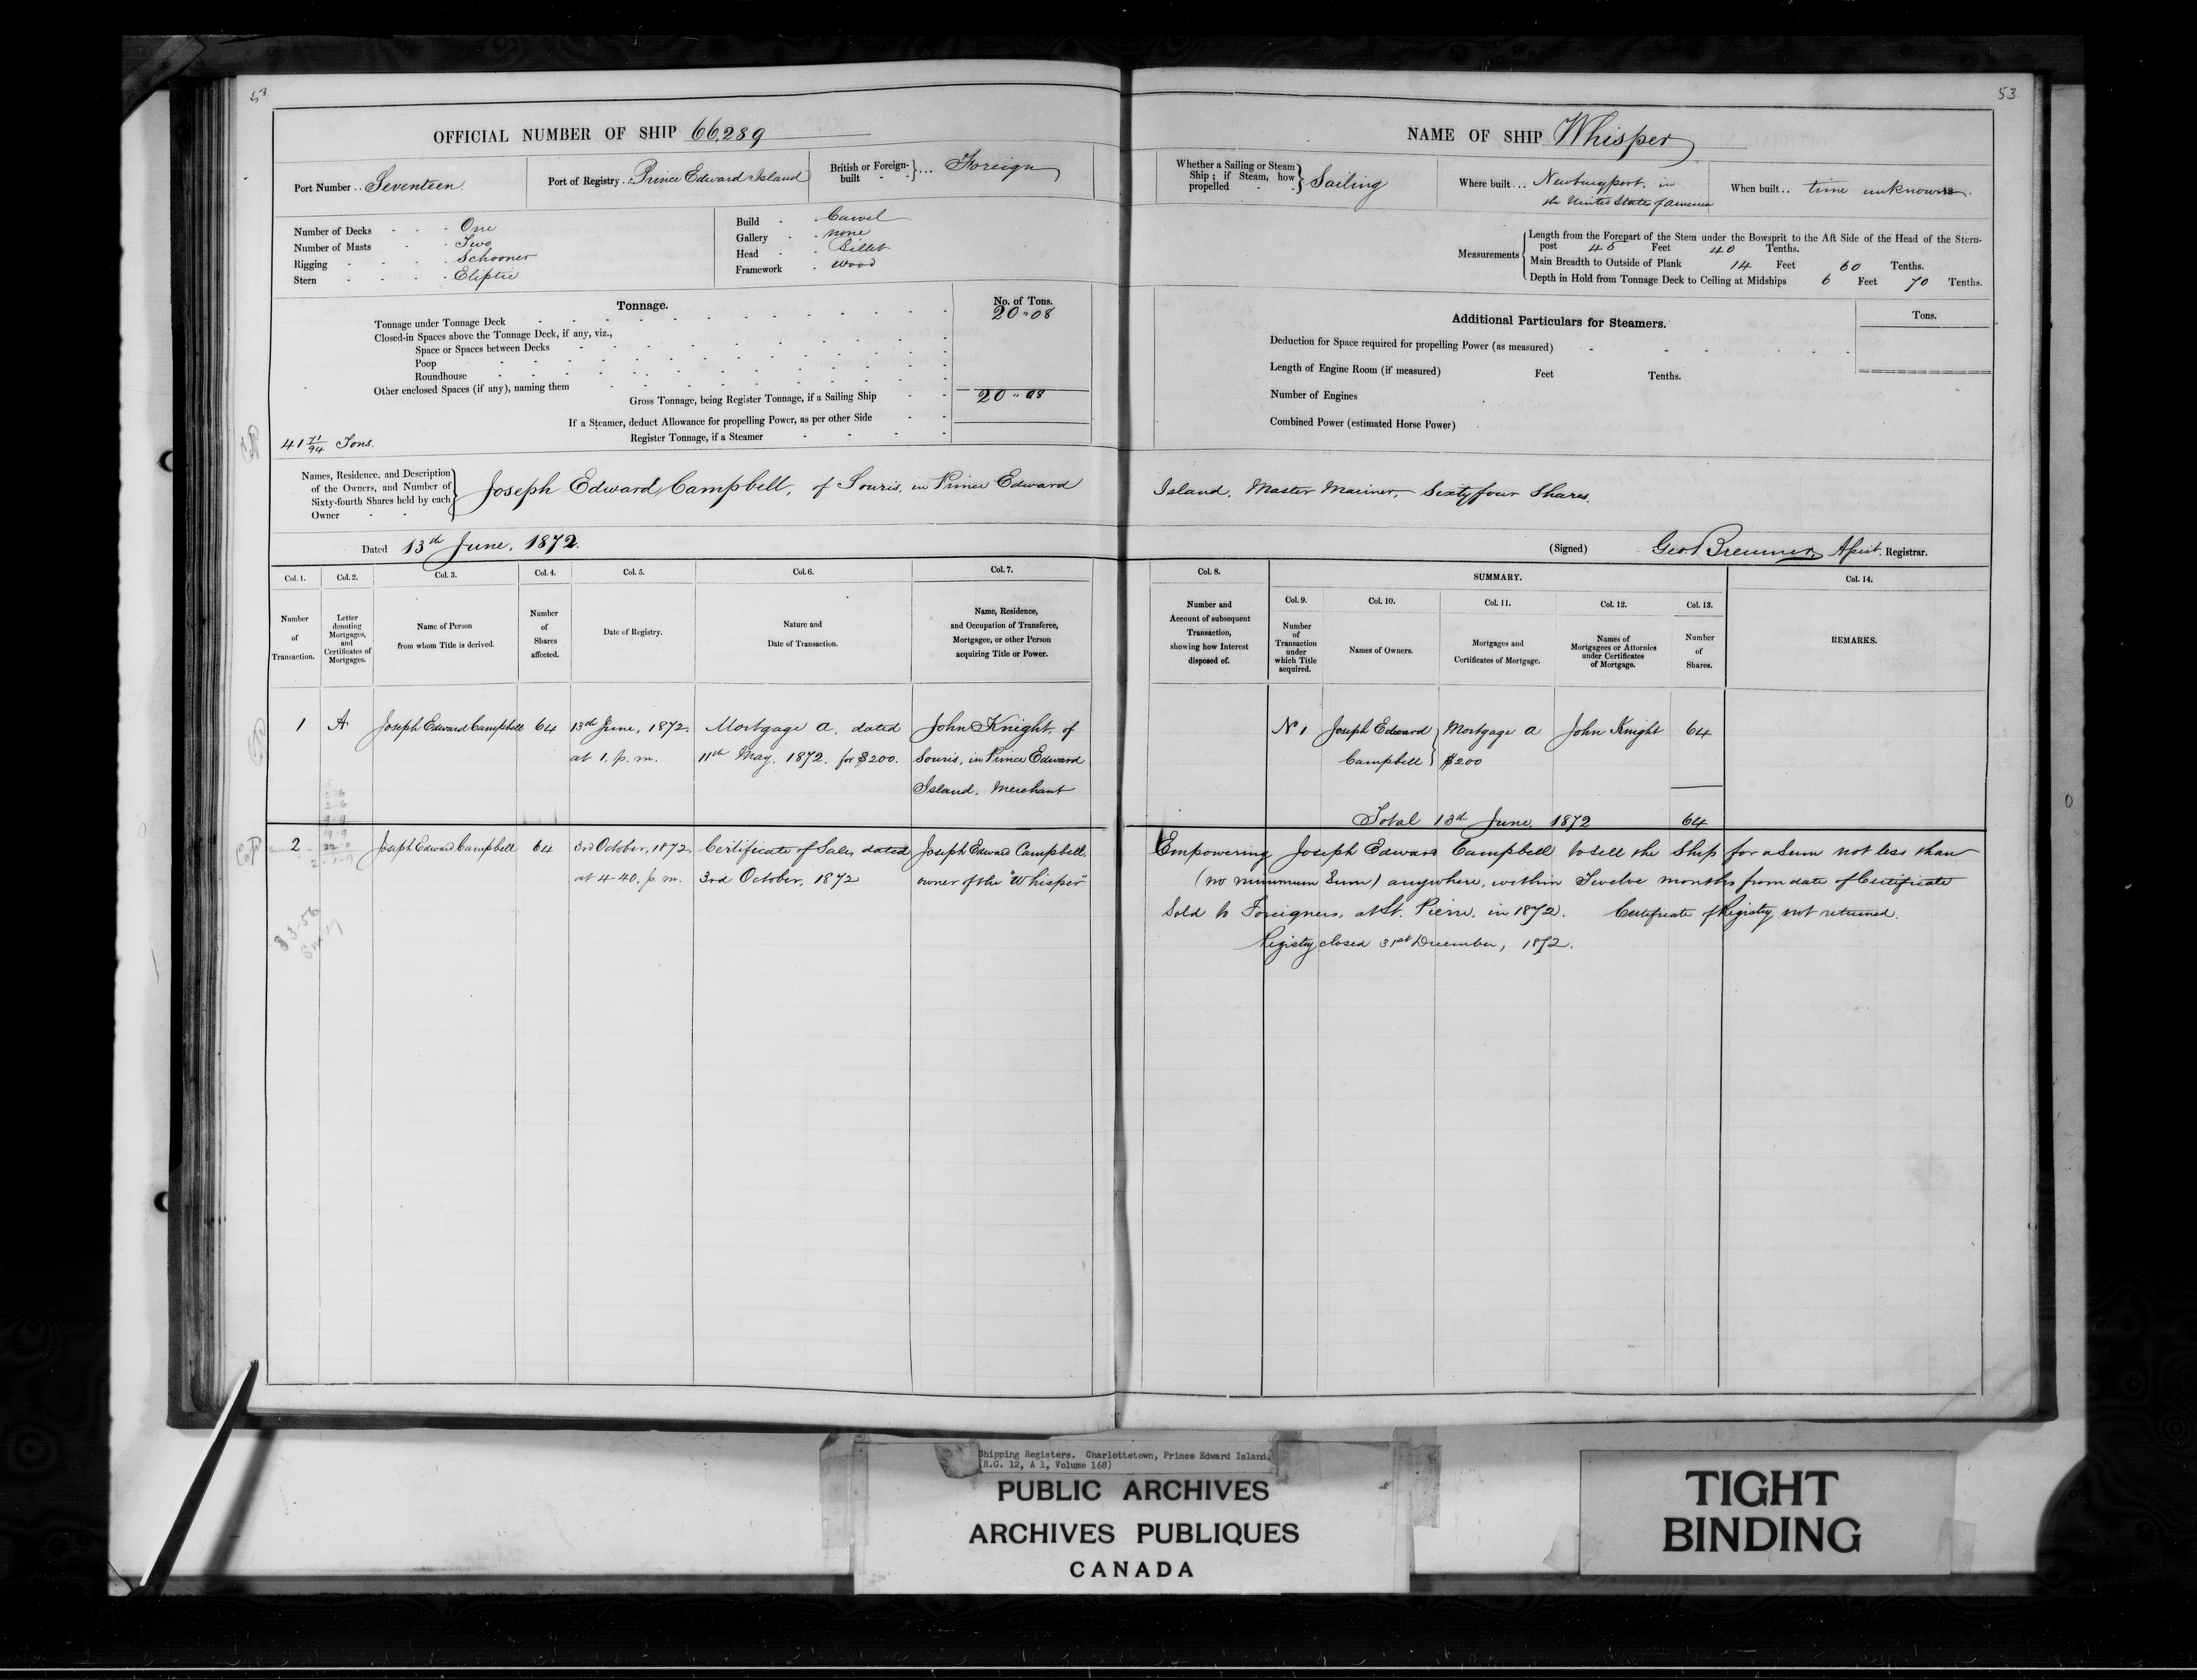 53
OFFICIAL NUMBER OF SHIP 66,289
Port Number .. Seventeen
Port of Registry .. Prince Edward Island
British or Foreign-built ... Foreign
Number of Decks - - - One
Number of Masts - - - Two
Rigging - - - Schooner
Stern - - - Eliptic
Build - Carvel
Gallery - none
Head - Billet
Framework - Wood
Tonnage.
No. of Tons.
Tonnage under Tonnage Deck 20 " 08
Closed-in Spaces above the Tonnage Deck, if any, viz.,
Space or Spaces between Decks
Poop
Roundhouse
Other enclosed Spaces (if any), naming them
Gross Tonnage, being Register Tonnage, if a Sailing Ship 20 " 08
If a Steamer, deduct Allowance for propelling Power, as per other Side
Register Tonnage, if a Steamer
41 71/94 Tons.
53
NAME OF SHIP Whisper
Whether a Sailing or Steam Ship; if Steam, how propelled Sailing
Where built ... Newburyport, in
the United State of America
When built .. time unknown.
Measurements
Length from the Forepart of the Stem under the Bowsprit to the Aft Side of the Head of the Stern-
post 45 Feet 40 Tenths.
Main Breadth to Outside of Plank 14 Feet 60 Tenths.
Depth in Hold from Tonnage Deck to Ceiling at Midships 6 Feet 70 Tenths.
Additional Particulars for Steamers.
Tons.
Deduction for Space required for propelling Power (as measured)
Length of Engine Room (if measured) Feet Tenths.
Number of Engines
Combined Power (estimated Horse Power)
Names, Residence, and Description of the Owners, and Number of Sixty-fourth Shares held by each Owner
Joseph Edward Campbell, of Souris, in Prince Edward Island, Master Mariner, Sixty four Shares.
Dated 13th June, 1872.
(Signed) Registrar.
Col. 1. Col. 2. Col. 3. Col. 4. Col. 5. Col. 6. Col. 7.
Number of Transaction.
Letter denoting Mortgages, and Certificates of Mortgages.
Name of Person from whom Title is derived.
Number of Shares affected.
Date of Registry.
Nature and Date of Transaction.
Name, Residence, and Occupation of Transferee, Mortgagee, or other Person acquiring Title or Power.
Col. 8. SUMMARY. Col. 14.
Col. 9. Col. 10. Col. 11. Col. 12. Col. 13.
Number and Account of subsequent Transaction, showing how Interest disposed of.
Number of Transaction under which Title acquired.
Names of Owners.
Mortgages and Certificates of Mortgage.
Names of Mortgagees or Attornies under Certificates of Mortgage.
Number of Shares.
REMARKS.
1 A Joseph Edward Campbell 64 13th June, 1872. Mortgage A. dated John Knight, of
at 1. p. m. 11th May, 1872. for $200. Souris, in Prince Edward
Island, Merchant
No 1 Joseph Edward Mortgage A John Knight 64
Campbell $200
Total 13th June, 1872 64
2 Joseph Edward Campbell 64 3rd October, 1872, Certificate of Sale, dated Joseph Edward Campbell
at 4-40, p. m. 3rd October, 1872 owner of the "Whisper"
Empowering Joseph Edward Campbell to sell the Ship for a Sum not less than
(no minimum Sum) anywhere, within Twelve months from date of Certificate
Sold to Foreigners, at St. Pierre, in 1872. Certificate of Registry not returned.
Registry closed 31st December, 1872.
Shipping Registers. Charlottetown, Prince Edward Island.
(R.G. 12, A 1, Volume 168)
PUBLIC ARCHIVES
ARCHIVES PUBLIQUES
CANADA
TIGHT
BINDING